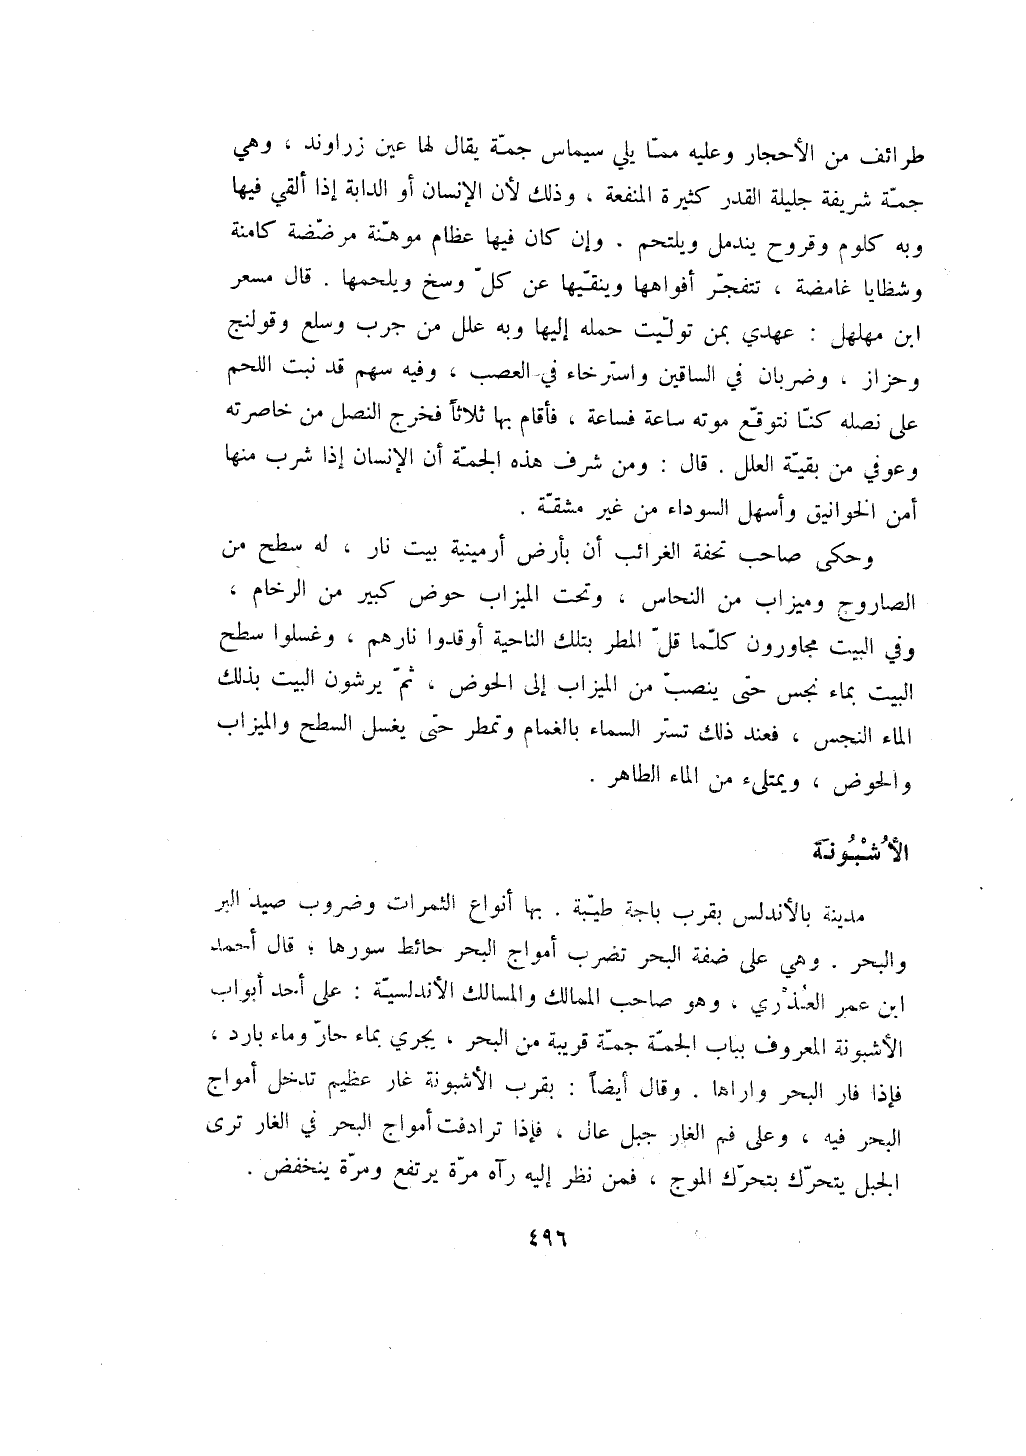 طرائف من الأحجار وعليه ممّا يلي سيماس جمّة يقال لها عين زراوند ، وهي
جمّة شريفة جليلة القدر كثيرة المنفعة ، وذلك لأن الإنسان أو الدابة إذا ألقي فيها
وبه كلوم وقروح يندمل ويلتحم . وإن كان فيها عظام موهّنة مرضّضة كامنة
وشظايا غامضة ، تتفجّر أفواهها وينقّيها عن كلّ وسخ ويلحمها . قال مسعر
ابن مهلهل : عهدي بمن تولّيت حمله إليها وبه علل من جرب وسلع وقولنج
وحزاز ، وضربان في الساقين واسترخاء في العصب ، وفيه سهم قد نبت اللحم
على نصله كنّا نتوقّع موته ساعة فساعة ، فأقام بها ثلاثاً فخرج النصل من خاصرته
وعوفي من بقيّة العلل . قال : ومن شرف هذه الجمّة أن الإنسان إذا شرب منها
أمن الخوانيق وأسهل السوداء من غير مشقّة .
وحكى صاحب تحفة الغرائب أن بأرض أرمينية بيت نار ، له سطح من
الصاروج وميزاب من النحاس ، وتحت الميزاب حوض كبير من الرخام ،
وفي البيت مجاورون كلّما قلّ المطر بتلك الناحية أوقدوا نارهم ، وغسلوا سطح
البيت بماء نجس حتّى ينصبّ من الميزاب إلى الحوض ، ثمّ يرشون البيت بذلك
الماء النجس ، فعند ذلك تستّر السماء بالغمام وتمطر حتّى يغسل السطح والميزاب
والحوض ، ويمتلىء من الماء الطاهر .
الأُشْبُونَة
مدينة بالأندلس بقرب باجة طيّبة . بها أنواع الثمرات وضروب صيد البر
والبحر . وهي على ضفة البحر تضرب أمواج البحر حائط سورها ؛ قال أحمد
ابن عمر العُذْري ، وهو صاحب الممالك والمسالك الأندلسيّة : على أحد أبواب
الأشبونة المعروف بباب الجمّة جمّة قريبة من البحر ، يجري بماء حارّ وماء بارد ،
فإذا فار البحر واراها . وقال أيضاً : بقرب الأشبونة غار عظيم تدخل أمواج
البحر فيه ، وعلى فم الغار جبل عال ، فإذا ترادفت أمواج البحر في الغار ترى
الجبل يتحرّك بتحرّك الموج ، فمن نظر إليه رآه مرّة يرتفع ومرّة ينخفض .
٤٩٦